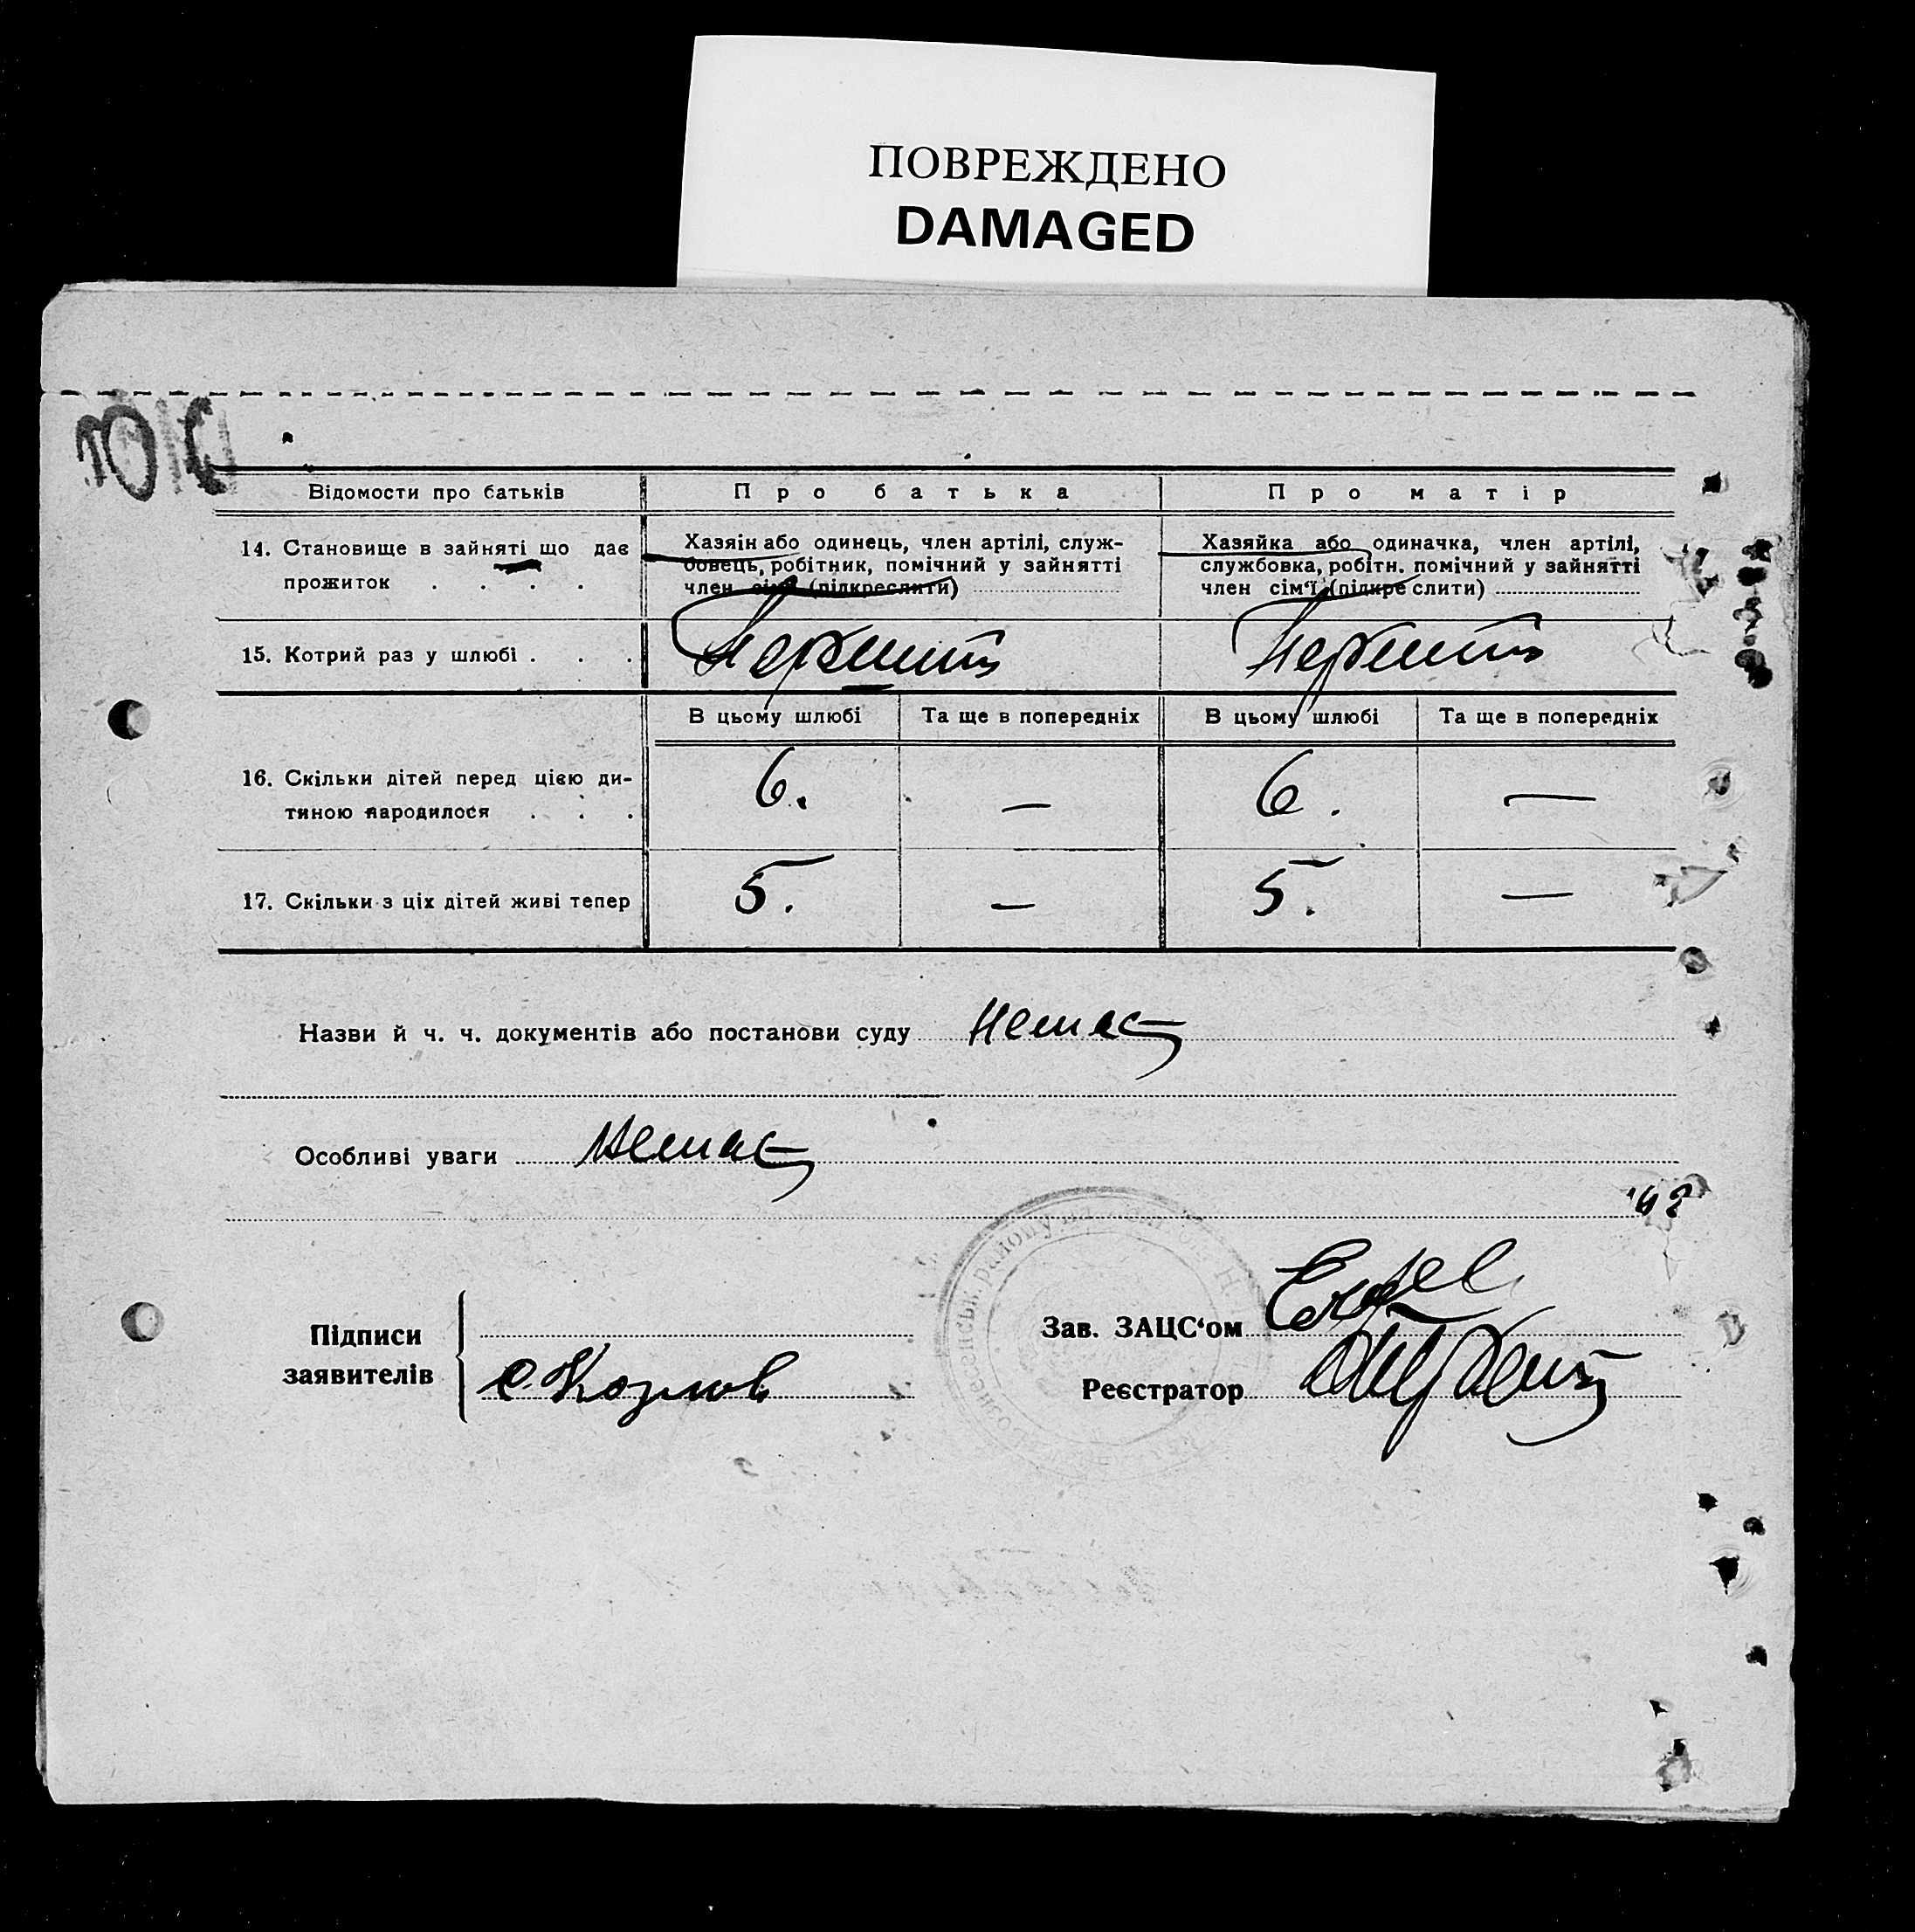 ПОВРЕЖДЕНО
DAMAGED
Відомости про батьків
Про батька
Про матір
14. Становище в зайняті що дає
прожиток . . . .
Хазяін або одинець, член артілі, служ-
бовець, робітник, помічний у зайнятті
член сім'ї (підкреслити)
Хазяйка або одиначка, член артілі,
службовка, робітн. помічний у зайнятті
член сім'ї (підкреслити)
15. Котрий раз у шлюбі . . .
Перший
Перший
В цьому шлюбі
Та ще в попередніх
В цьому шлюбі
Та ще в попередніх
16. Скільки дітей перед цією ди-
тиною народилося . . .
6.
—
6.
—
17. Скільки з ціх дітей живі тепер
5.
—
5.
—
Назви й ч. ч. документів або постанови суду Немає
Особливі уваги Немає
42
Підписи
заявителів
Козлов
Зав. ЗАЦС'ом
Реєстратор